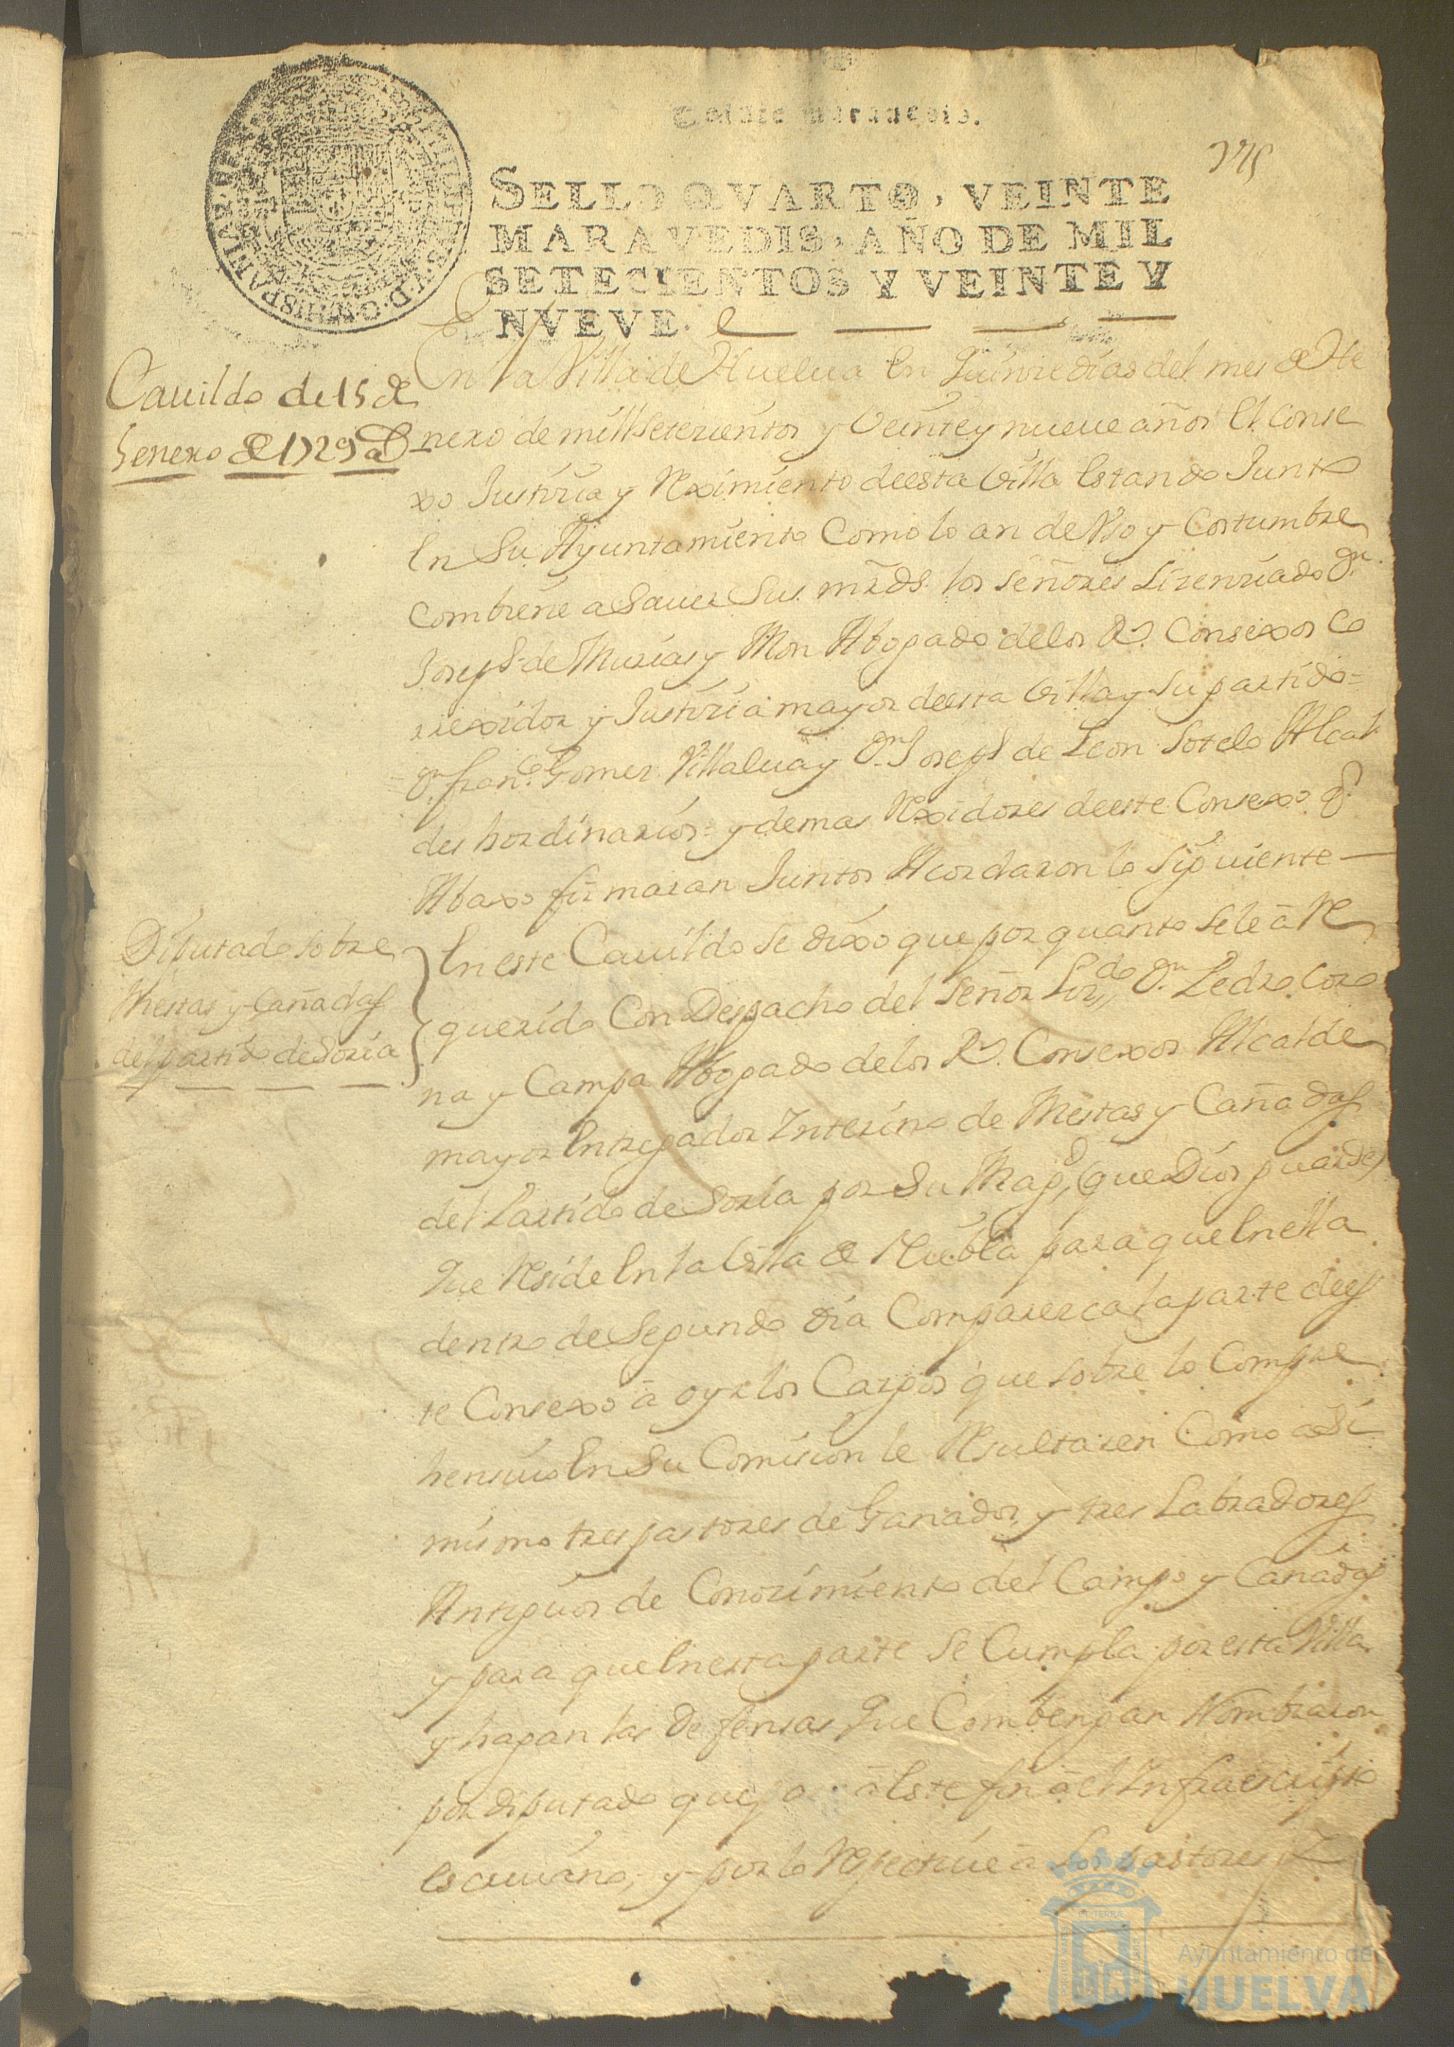 Veinte marauedis.
175
SELLO QVARTO, VEINTE
MARAVEDIS, AÑO DE MIL
SETECIENTOS Y VEINTE Y
NVEVE.
Cauildo de 15 de
henero de 1729 as
En la Villa de Huelua en quinze dias del mes de He
nero de mill setezientos y Veinte y nueue años el Conse
xo Justizia y Reximiento de esta Villa estando Junto
en Su Ayuntamiento Como lo an de Vso y Costumbre
combiene a Sauer Sus mrds. los señores Lizenziado Dn.
Joseph de Murias y Mon Abogado de los Rs. Consexos Co
rrexidor y Justizia mayor de esta Villa y Su partido =
Dn. Franco. Gomez Villalua y Dn. Joseph de Leon Sotelo Alcal
des hordinarios = y demas Rexidores de este Consexo q.
Abaxo firmaran Juntos Acordaron lo Siguiente
Diputado sobre
Mestas y Cañadas
del partido de Soria
En este Cauildo se dixo que por quanto se le à Re
querido Con Despacho del Señor Lizdo. Dn. Pedro Coro
na y Campa Abogado de los Rs. Consexos Alcalde
mayor Entregador Interino de Mestas y Cañadas
del Partido de Soria por Su Magd. (que Dios guarde)
que Reside en la Villa de Niebla para que en ella
dentro de Segundo dia Comparezca la parte de es
te Consexo à oyr los Cargos que sobre lo Compre
hensiuo en Su Comision le Resultaren Como asi
mismo tres pastores de Ganados, y tres Labradores
Antiguos de Conozimiento del Campo y Cañadas
y para que en esta parte Se Cumpla por esta Villa
y hagan las Defensas que Combengan Nombraron
por diputado que pa à Este fin à el Infraescripto
escriuano, y por lo Respectiue à los pastores
Ayuntamiento de
HUELVA